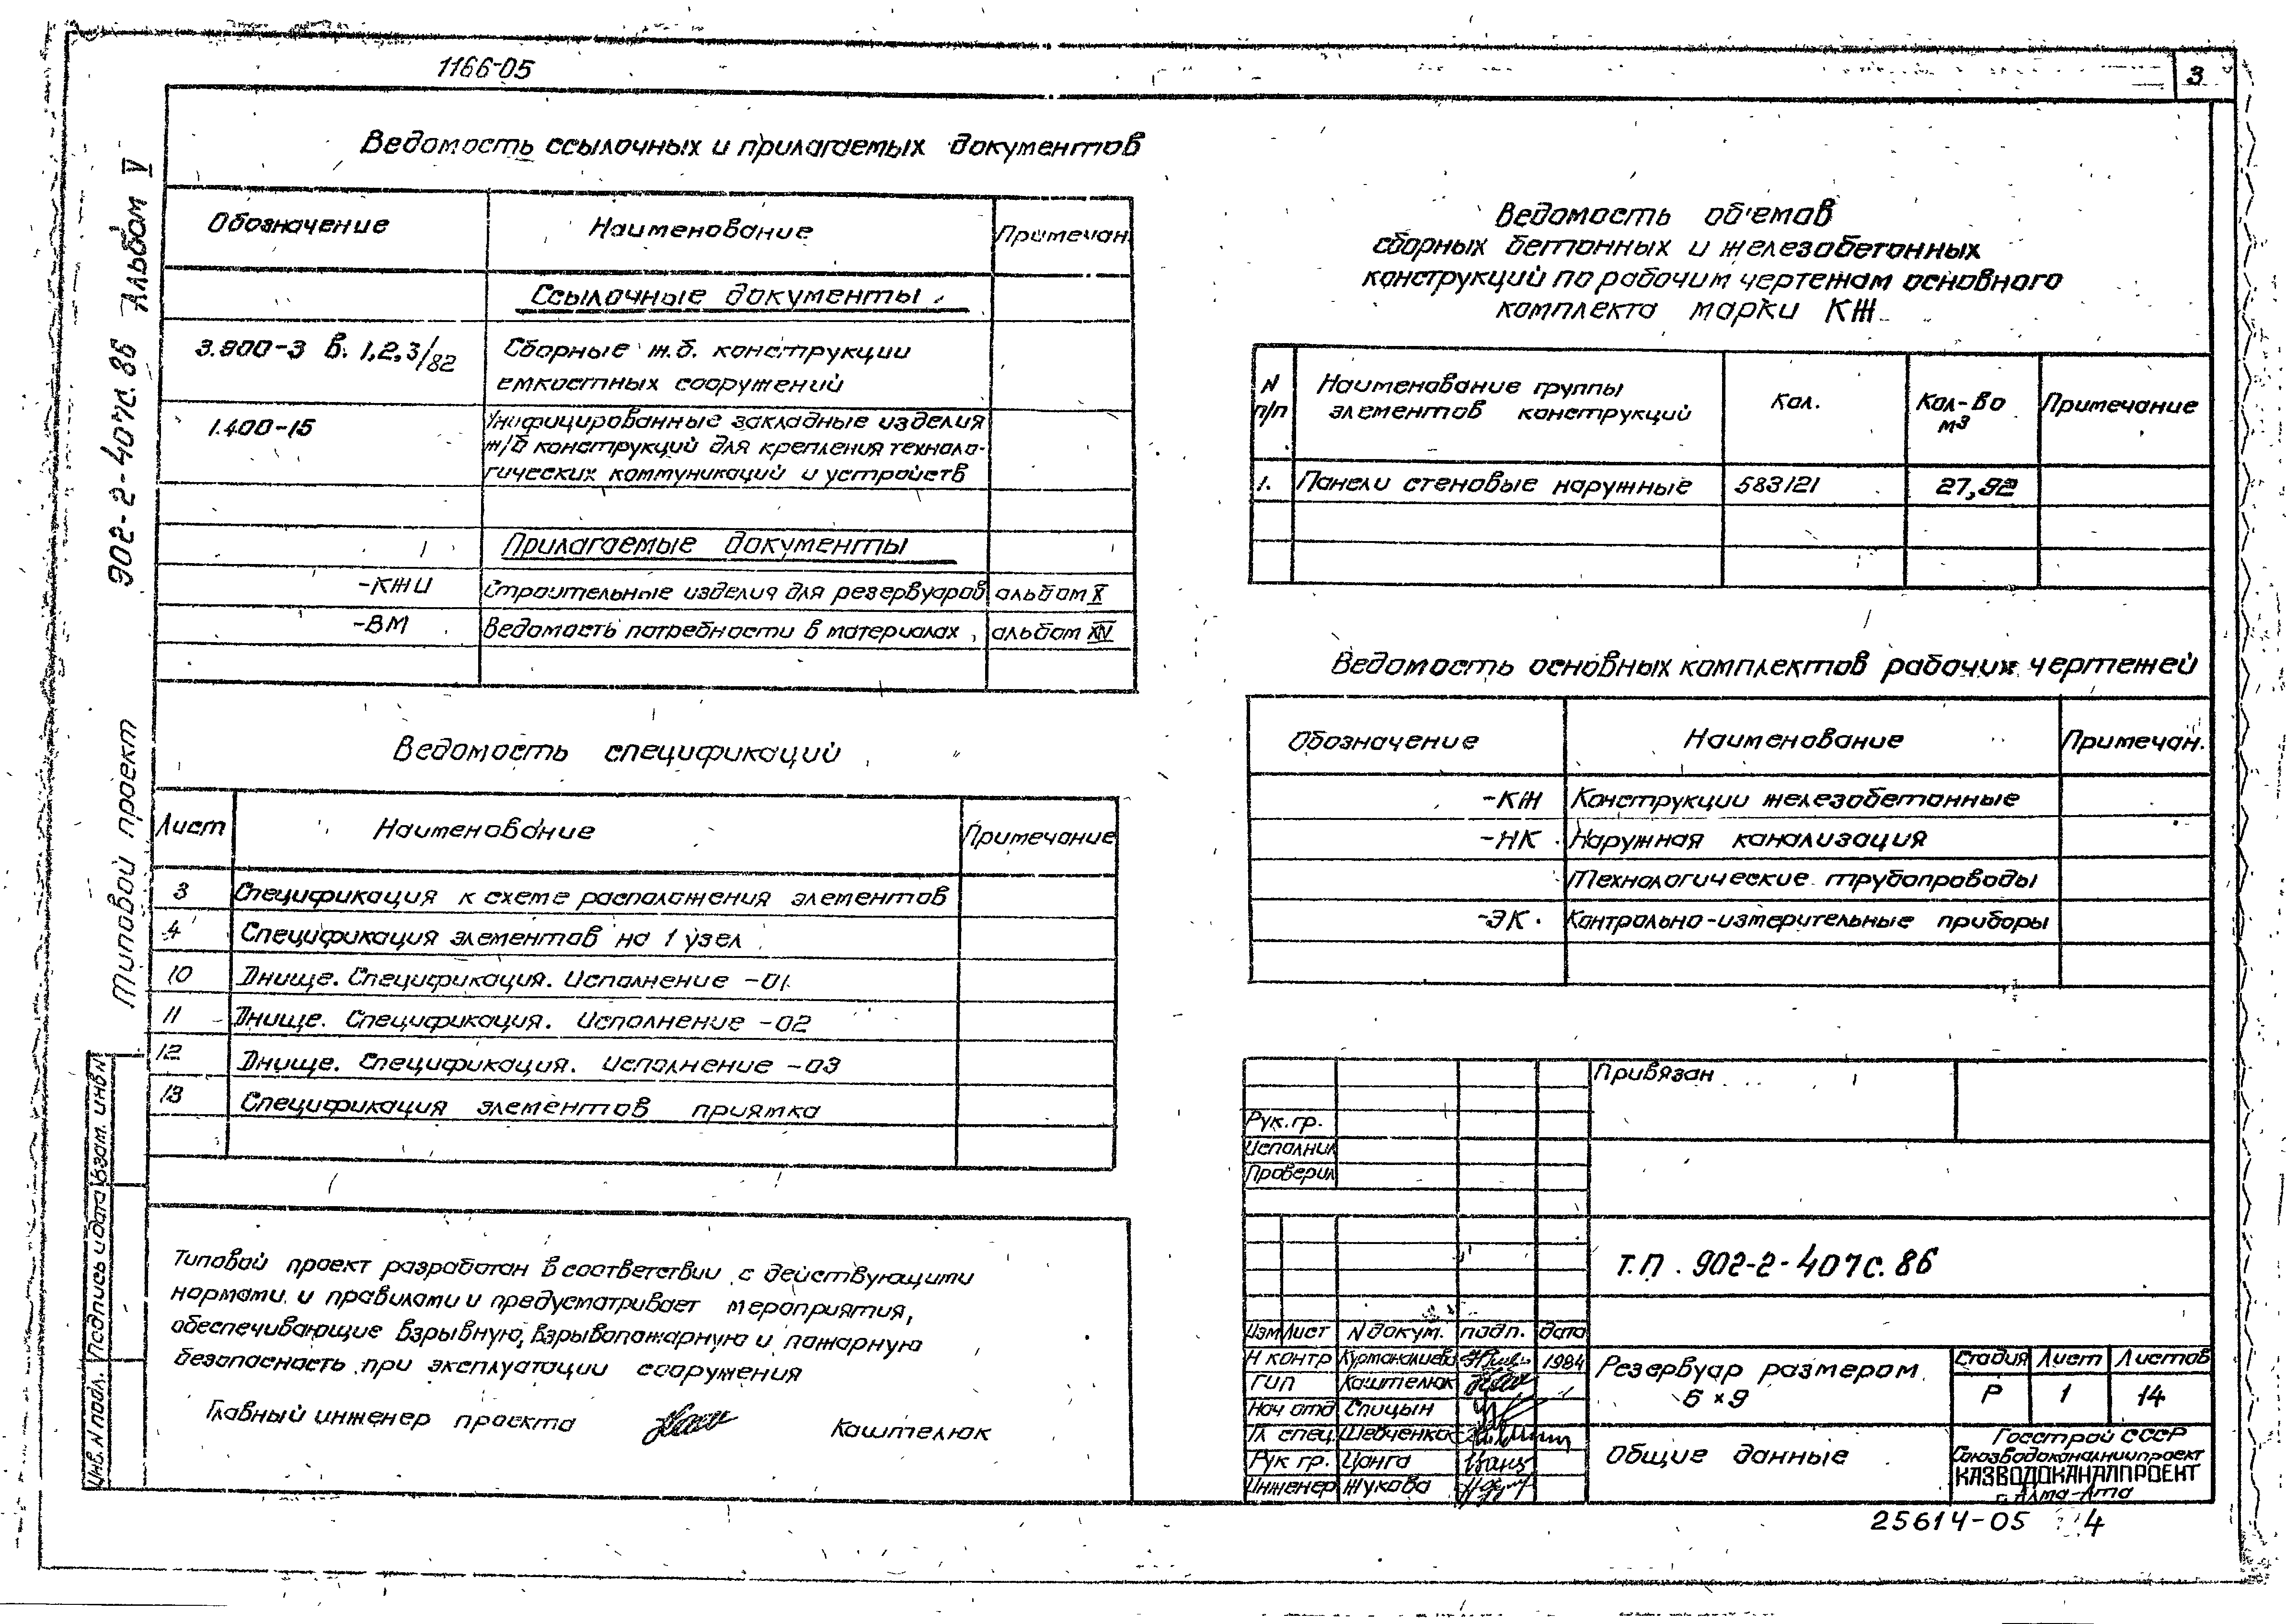 1166-05
3
Альбом V
902-2-407с.86
Типовой проект
Ведомость ссылочных и прилагаемых документов
Обозначение Наименование Примечан.
Ссылочные документы
3.900-3 в. 1,2,3/82 Сборные ж.б. конструкции
емкостных сооружений
1.400-15 Унифицированные закладные изделия
ж/б конструкций для крепления техноло-
гических коммуникаций и устройств
Прилагаемые документы
-КЖИ Строительные изделия для резервуаров альбом X
-ВМ Ведомость потребности в материалах альбом XIV
Ведомость спецификаций
Лист Наименование Примечание
3 Спецификация к схеме расположения элементов
4 Спецификация элементов на 1 узел
10 Днище. Спецификация. Исполнение -01
11 Днище. Спецификация. Исполнение -02
12 Днище. Спецификация. Исполнение -03
13 Спецификация элементов приямка
Типовой проект разработан в соответствии с действующими
нормами и правилами и предусматривает мероприятия,
обеспечивающие взрывную, взрывопожарную и пожарную
безопасность при эксплуатации сооружения
Главный инженер проекта Каштелюк
Инв. N подл. Подпись и дата Взам. инв. N
Ведомость объемов
сборных бетонных и железобетонных
конструкций по рабочим чертежам основного
комплекта марки КЖ
N п/п Наименование группы элементов конструкций Кол. Кол-во м3 Примечание
1. Панели стеновые наружные 583121 27,92
Ведомость основных комплектов рабочих чертежей
Обозначение Наименование Примечан.
-КЖ Конструкции железобетонные
-НК Наружная канализация
Технологические трубопроводы
-ЭК Контрольно-измерительные приборы
Привязан
Рук.гр.
Исполнил
Проверил
Т.П. 902-2-407с.86
Изм Лист N докум. подп. дата
Н контр Курманалиева 1984
ГИП Каштелюк
Нач отд Спицын
Гл спец. Шевченко
Рук гр. Цанга
Инженер Жукова
Резервуар размером
6×9
Стадия Лист Листов
Р 1 14
Общие данные
Госстрой СССР
Союзводоканалниипроект
КАЗВОДОКАНАЛПРОЕКТ
г. Алма-Ата
25614-05 4